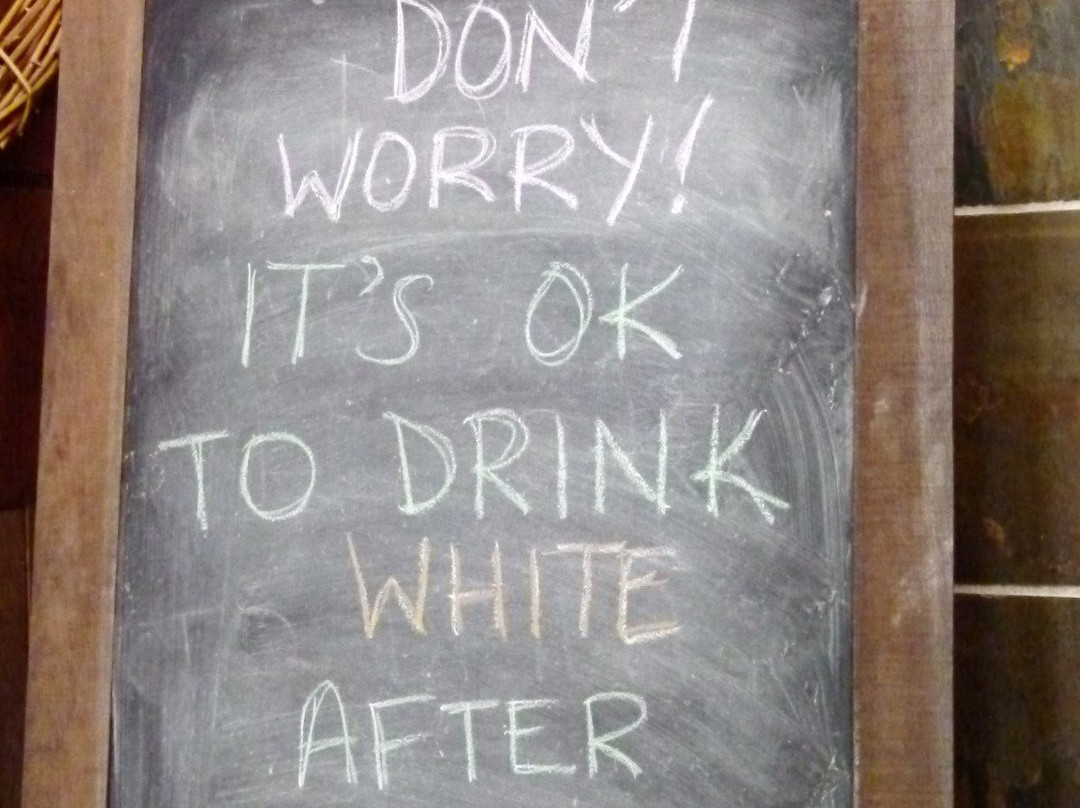 DON'T
WORRY!
IT'S OK
TO DRINK
WHITE
AFTER